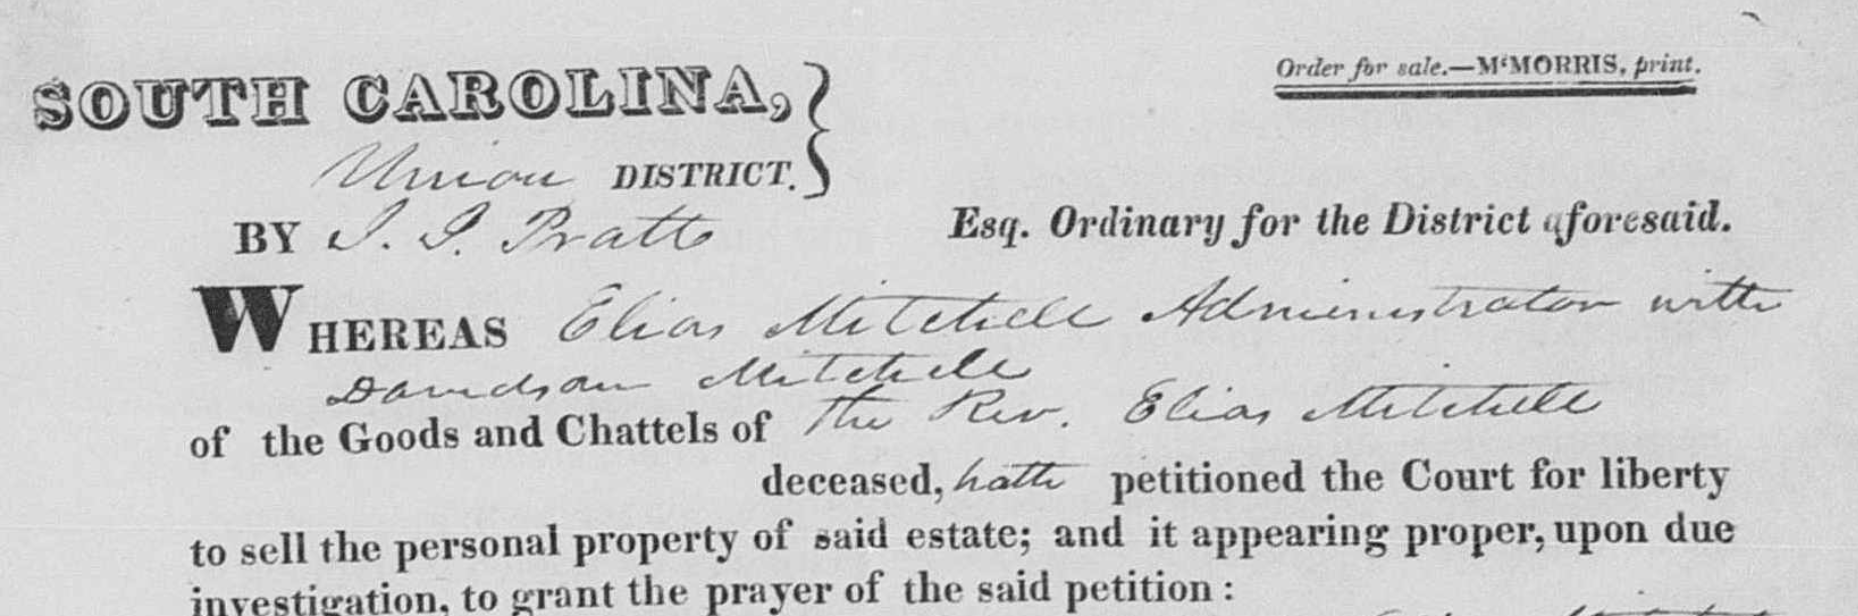 Order for sale.—McMORRIS, print.
SOUTH CAROLINA,
Union DISTRICT.
BY J. J. Pratt Esq. Ordinary for the District aforesaid.
WHEREAS Elias Mitchell Administrator with
Davidson Mitchell
of the Goods and Chattels of the Rev. Elias Mitchell
deceased, hath petitioned the Court for liberty
to sell the personal property of said estate; and it appearing proper, upon due
investigation, to grant the prayer of the said petition: